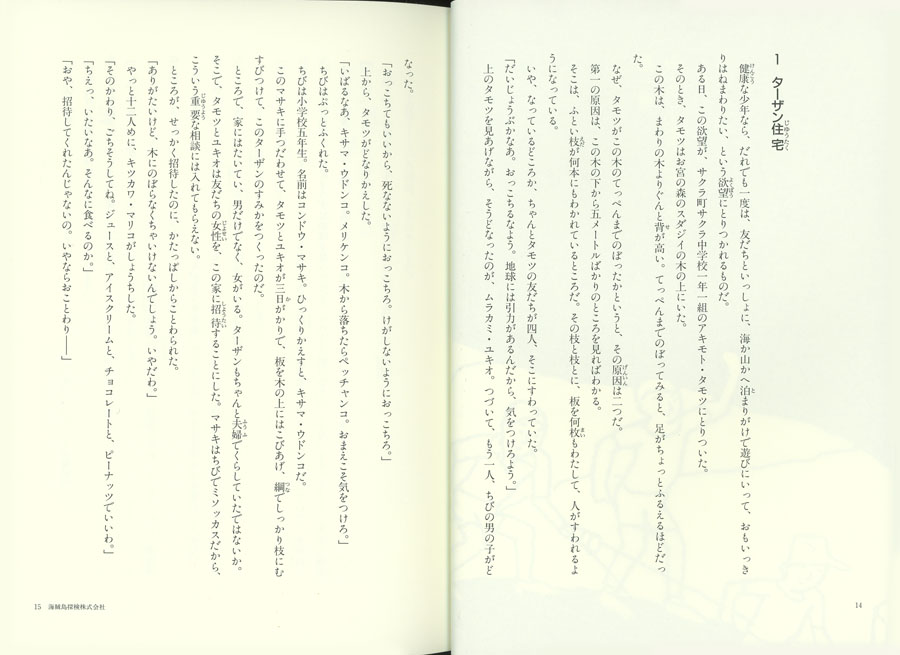 1 ターザン住宅
健康な少年なら、だれでも一度は、友だちといっしょに、海か山かへ泊まりがけで遊びにいって、おもいっき
りはねまわりたい、という欲望にとりつかれるものだ。
ある日、この欲望が、サクラ町サクラ中学校一年一組のアキモト・タモツにとりついた。
そのとき、タモツはお宮の森のスダジイの木の上にいた。
この木は、まわりの木よりぐんと背が高い。てっぺんまでのぼってみると、足がちょっとふるえるほどだっ
た。
なぜ、タモツがこの木のてっぺんまでのぼったかというと、その原因は二つだ。
第一の原因は、この木の下から五メートルばかりのところを見ればわかる。
そこは、ふとい枝が何本にもわかれているところだ。その枝と枝とに、板を何枚もわたして、人がすわれるよ
うになっている。
いや、なっているどころか、ちゃんとタモツの友だちが四人、そこにすわっていた。
「だいじょうぶかなあ。おっこちるなよう。地球には引力があるんだから、気をつけろよう。」
上のタモツを見あげながら、そうどなったのが、ムラカミ・ユキオ。つづいて、もう一人、ちびの男の子がど
14
なった。
「おっこちてもいいから、死なないようにおっこちろ。けがしないようにおっこちろ。」
上から、タモツがどなりかえした。
「いばるなあ、キサマ・ウドンコ。メリケンコ。木から落ちたらペッチャンコ。おまえこそ気をつけろ。」
ちびはぷっとふくれた。
ちびは小学校五年生。名前はコンドウ・マサキ。ひっくりかえすと、キサマ・ウドンコだ。
このマサキに手つだわせて、タモツとユキオが三日がかりで、板を木の上にはこびあげ、綱でしっかり枝にむ
すびつけて、このターザンのすみかをつくったのだ。
ところで、家にはたいてい、男だけでなく、女がいる。ターザンもちゃんと夫婦でくらしていたではないか。
そこで、タモツとユキオは友だちの女性を、この家に招待することにした。マサキはちびでミソッカスだから、
こういう重要な相談には入れてもらえない。
ところが、せっかく招待したのに、かたっぱしからことわられた。
「ありがたいけど、木にのぼらなくちゃいけないんでしょう。いやだわ。」
やっと十二人めに、キツカワ・マリコがしょうちした。
「そのかわり、ごちそうしてね。ジュースと、アイスクリームと、チョコレートと、ピーナッツでいいわ。」
「ちえっ、いたいなあ。そんなに食べるのか。」
「おや、招待してくれたんじゃないの。いやならおことわり――」
15 海賊島探検株式会社